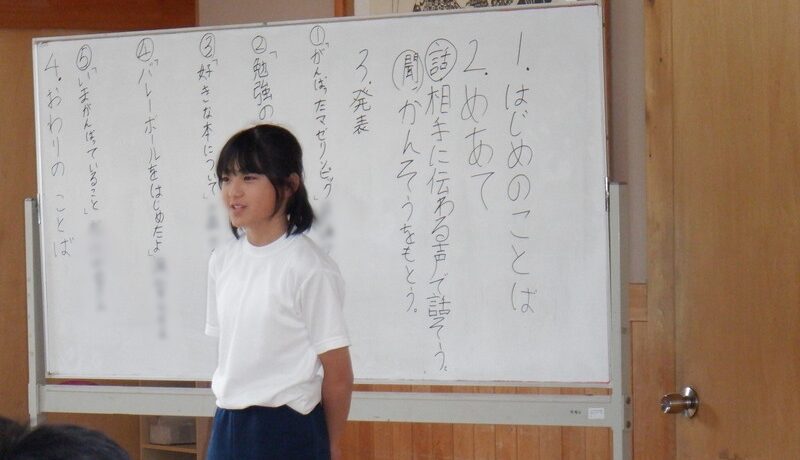 1.はじめのことば
2.めあて
話 相手に伝わる声で話そう。
聞 かんそうをもとう。
3.発表
①「がんばったマゼリンピック」
②「勉強の
③「好きな本について」
④「バレーボールをはじめたよ」
⑤「いまがんばっていること」
4.おわりのことば